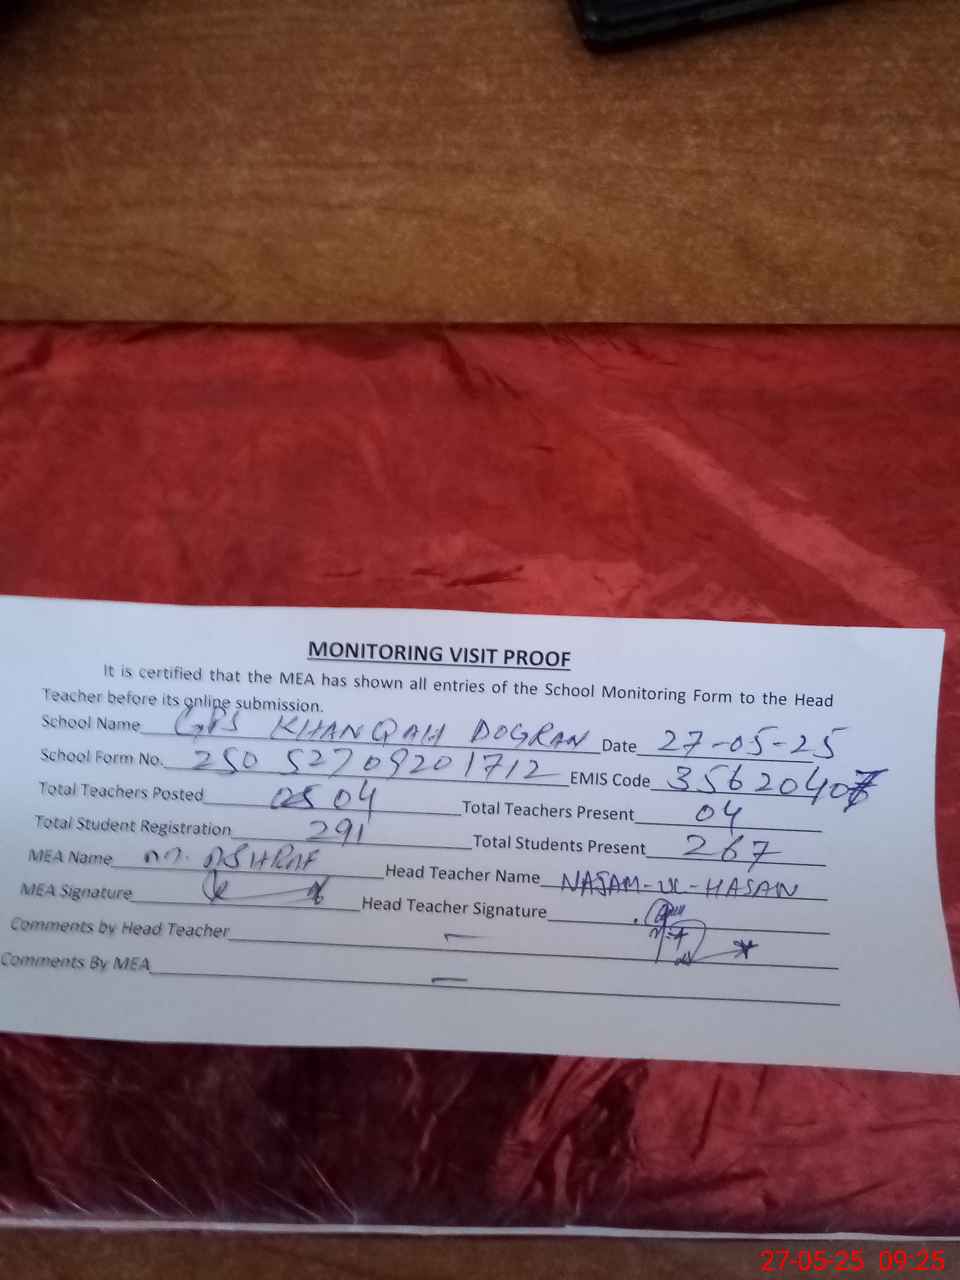 MONITORING VISIT PROOF
It is certified that the MEA has shown all entries of the School Monitoring Form to the Head
Teacher before its online submission.
School Name GPS KHANQAH DOGRAN Date 27-05-25
School Form No. 250 52709201712 EMIS Code 3562040
Total Teachers Posted 04 Total Teachers Present 04
Total Student Registration 291 Total Students Present 267
MEA Name M. ASHRAF Head Teacher Name NAJAM-UL-HASAN
MEA Signature Head Teacher Signature
Comments by Head Teacher —
Comments By MEA —
27-05-25 09:25